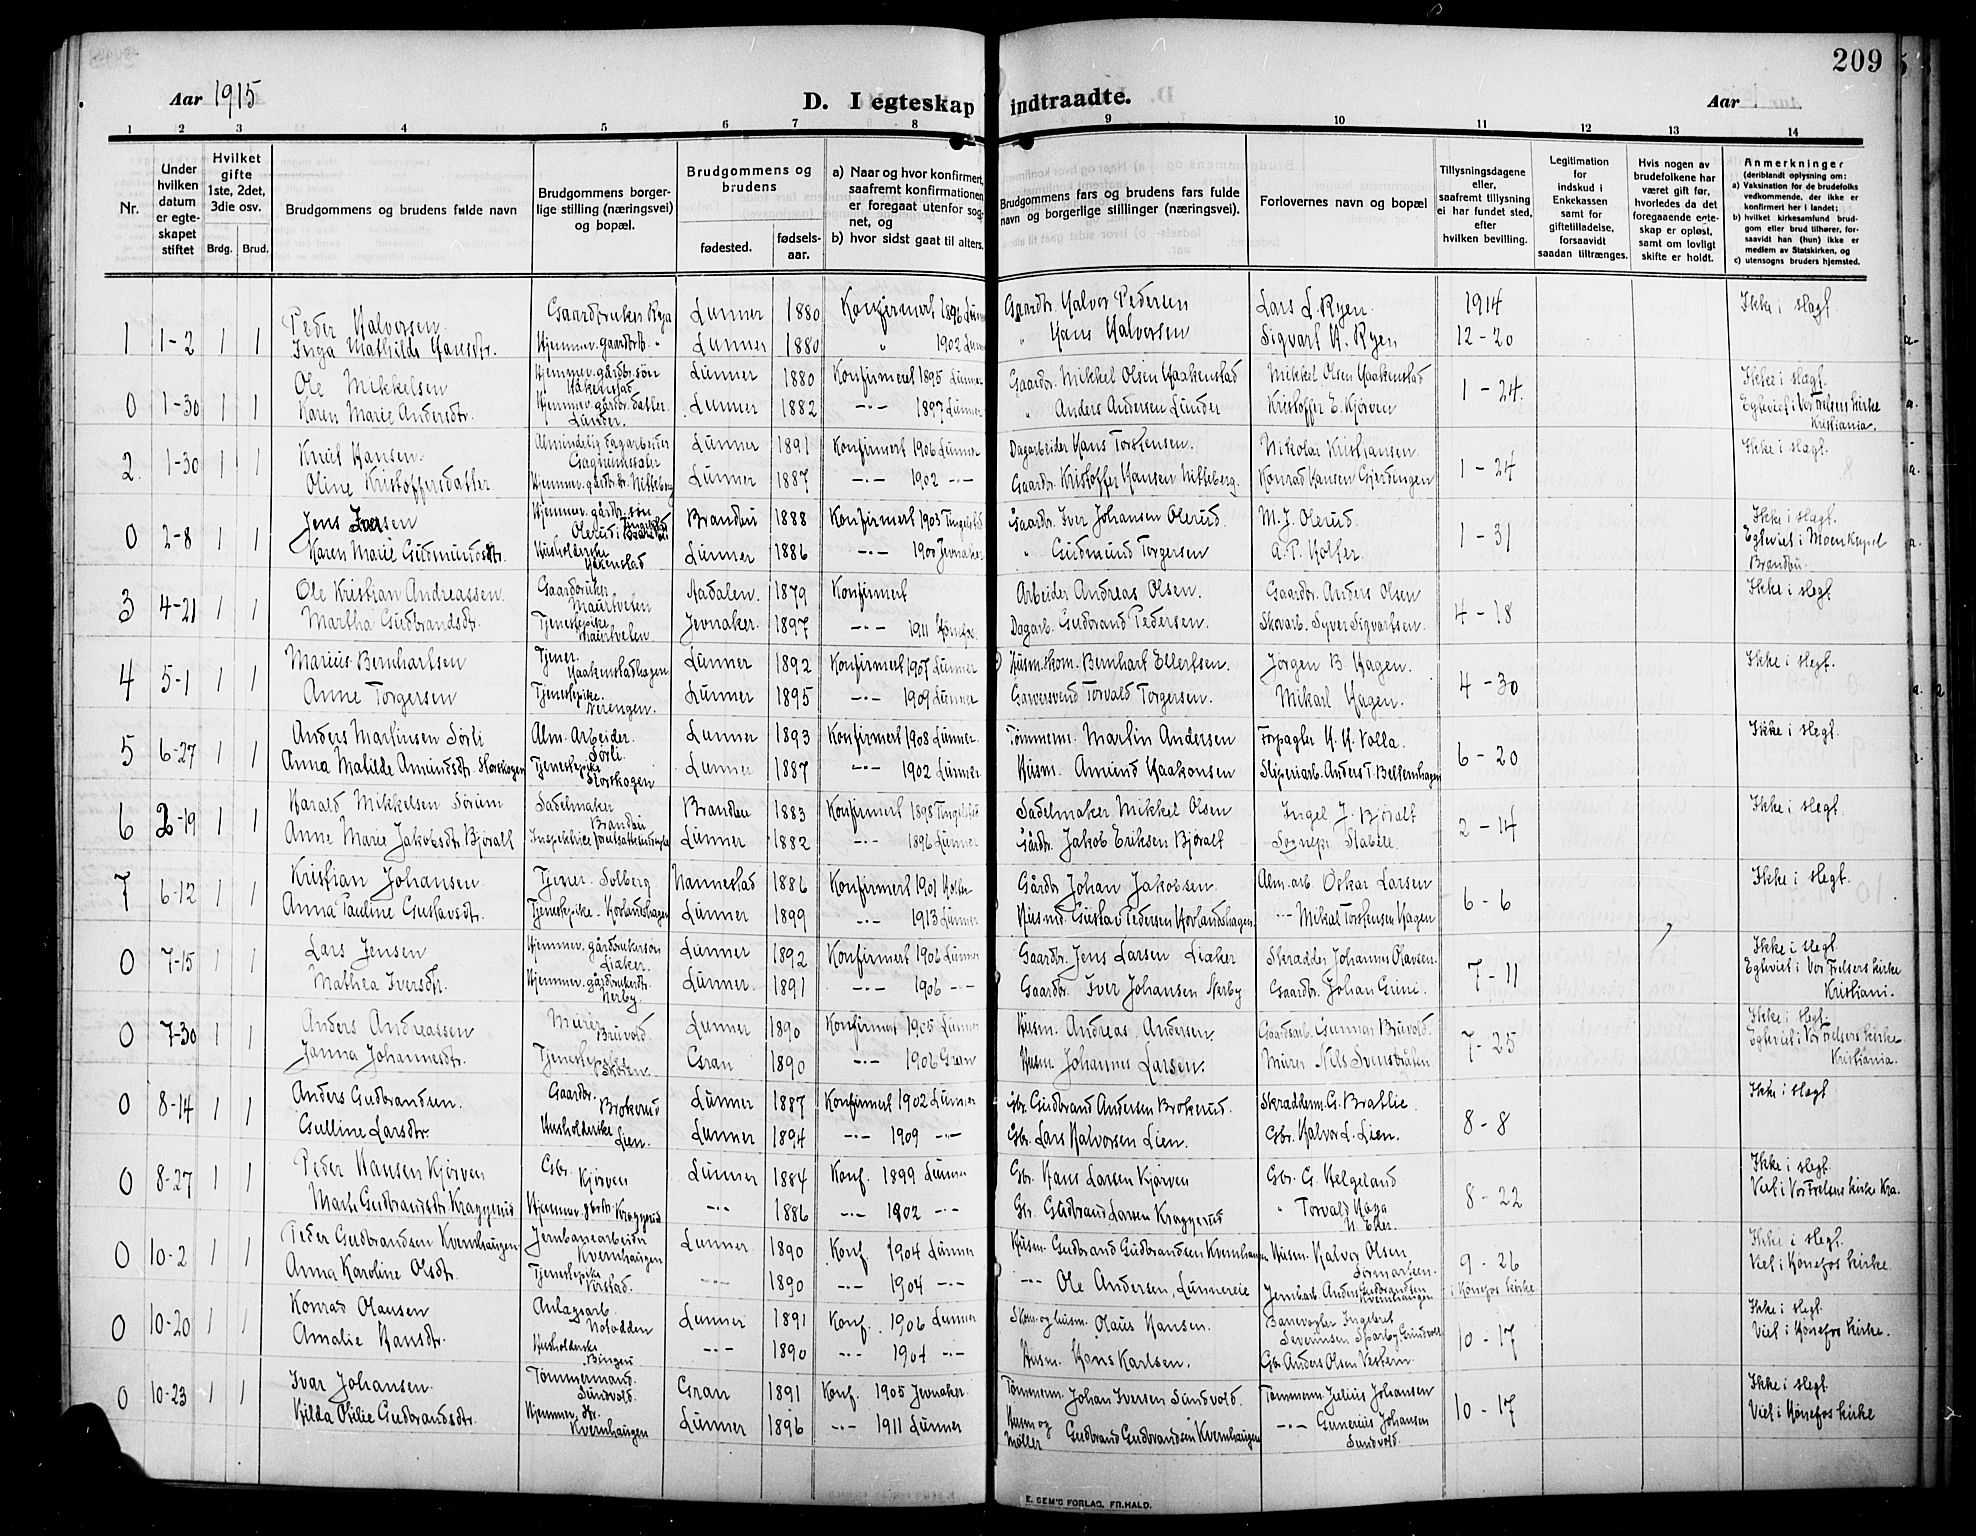 209
Aar 1915
D. I egteskap indtraadte.
Aar
1 2 3 4 5 6 7 8 9 10 11 12 13 14
Nr.
Under hvilken datum er egteskapet stiftet
Hvilket gifte 1ste, 2det, 3die osv.
Brdg. Brud.
Brudgommens og brudens fulde navn
Brudgommens borgerlige stilling (næringsvei) og bopæl.
Brudgommens og brudens
fødested.
fødselsaar.
a) Naar og hvor konfirmert, saafremt konfirmationen er foregaat utenfor sognet, og
b) hvor sidst gaat til alters.
Brudgommens fars og brudens fars fulde navn og borgerlige stillinger (næringsvei).
Forlovernes navn og bopæl
Tillysningsdagene eller, saafremt tillysning ei har fundet sted, efter hvilken bevilling.
Legitimation for indskud i Enkekassen samt for giftetilladelse, forsaavidt saadan tiltrænges.
Hvis nogen av brudefolkene har været gift før, hvorledes da det foregaaende egteskap er opløst, samt om lovligt skifte er holdt.
Anmerkninger
(deriblandt oplysning om:
a) Vaksination for de brudefolks vedkommende, der ikke er konfirmert her i landet;
b) hvilket kirkesamfund brudgom eller brud tilhører, forsaavidt han (hun) ikke er medlem av Statskirken, og
c) utensogns bruders hjemsted.
1 1-2 1 1 Peder Halvorsen Gaardbruker Rya Lunner 1880 Konfirmert 1896 Lunner Gaardbr. Halvor Pedersen Lars L. Ryen. 1914 Ikke i slegt.
Inga Mathilde Hansdtr. Hjemmev. gaardbrtb. " Lunner 1880 " 1902 Lunner " Hans Halvorsen Sigvart H. Ryen 12-20
0 1-30 1 1 Ole Mikkelsen Hjemmev. gårdbr. søn Haakenstad Lunner 1880 Konfirmert 1895 Lunner Gaardbr. Mikkel Olsen Haakenstad Mikkel Olsen Haakenstad 1-24. Ikke i slegt.
Karen Marie Andersdtr. Hjemmev. gårdbr. datter Lunder. Lunner 1882 -"- 1897 Lunner " Anders Andersen Lunder Kristoffer E. Kjørven Egteviet i Vor Frelsers Kirke Kristiania.
2. 1-30 1 1 Knut Hansen. Almindelig dagarbeider Lunner 1891 Konfirmert 1906 Lunner Dagarbeider Hans Torstensen. Nikolai Kristiansen 1-24 Ikke i slegt.
Oline Kristoffersdatter Hjemmev. gårdbr. dtr. Nitteberg Lunner 1887 -"- 1902 -"- Gaardbr. Kristoffer Hansen Nitteberg. Konrad Hansen Gjerdingen
0 2-8 1 1 Jens Iversen Hjemmev. gårdbr. søn Olerud i Brandbu Brandbu 1888 Konfirmert 1903 Tingelstad Gaardbr. Iver Johansen Olerud. M. J. Olerud. 1-31 Ikke i slegt.
Karen Marie Gudmundsdtr. Husholderske Hakenstad Lunner 1886 -"- 1900 Jevnaker " Gudmund Torgersen A. P. Holter. Egteviet i Moen Kapel Brandbu.
3 4-21 1 1 Ole Kristian Andreassen. Gaardbruker Maurtveten Aadalen. 1879 Konfirmert Arbeider Andreas Olsen. Gaardbr. Anders Olsen 4-18 Ikke i slegt.
Martha Gudbrandsdtr. Tjenestepike Maurtveten Jevnaker. 1897 -"- 1911 Hønefos Dagarb. Gudbrand Pedersen. Skovarb. Syver Sigvartsen.
4 5-1 1 1 Marius Bernhartsen Tjener Haakenstadhagen Lunner 1892 Konfirmert 1907 Lunner Husm. skom. Bernhart Ellertsen. Jørgen B. Hagen. 4-30 Ikke i slegt.
Anne Torgersen Tjenestepike. Nerengen. Lunner 1895 -"- 1909 Lunner Garversvend Torvald Torgersen. Mikael Hagen.
5 6-27 1 1 Anders Martinsen Sørli Alm. Arbeider. Sørli. Lunner 1893 Konfirmert 1908 Lunner. Tømmerm. Martin Andersen Forpagter H. H. Volla. 6-20 Ikke i slegt.
Anna Matilde Amundsdtr. Storskogen Tjenestepike Storskogen Lunner 1887 -"- 1902 Lunner. Husm. Amund Haakonsen Sliperiarb. Anders T.
6 2-19 1 1 Harald Mikkelsen Sørum Sadelmaker Brandbu Brandbu 1883 Konfirmert 1898 Tingelstad Sadelmaker Mikkel Olsen Ingel J. Bjøralt 2-14 Ikke i slegt.
Anne Marie Jakobsdtr. Bjøralt Lunner 1882 -"- 1896 Lunner Gårdbr. Jakob Eriksen Bjøralt Sognepr. Stabell.
7 6-12 1 1 Kristian Johansen Tjener Solberg Nannestad 1886 Konfirmert 1901 Holter Gårdbr. Johan Jakobsen. Alm. arb. Oskar Larsen 6-6 Ikke i slegt.
Anna Pauline Gustavsdtr. Tjenestepike. Hovlandshagen Lunner 1899 -"- 1913 Lunner Husmd. Gustav Pedersen Hovlandshagen -"- Mikal Torstensen Hagen
0 7-15 1 1 Lars Jensen Hjemmev. gårdbrukersøn Liaker. Lunner 1892 Konfirmert 1906 Lunner Gaardbr. Jens Larsen Liaker Skrædder Johannes Olavsen. 7-11 Ikke i slegt.
Mathea Iversdtr. Hjemmev. gårdbrukerdtr. Nerby Lunner. 1891 -"- 1906 -"- Gaardbr. Iver Johansen Nerby Gaardbr. Johan Grini. Egteviet i Vor Frelsers Kirke Kristiani.
0 7-30 1 1 Anders Andreassen Murer Bruvold. Lunner 1890 Konfirmert 1905 Lunner Husm. Andreas Andersen. Gaardsarb. Gunnar Bruvold. 7-25 Ikke i slegt.
Janna Johannesdtr. Tjenestepike Skoien. Gran 1890 -"- 1906 Gran Husm. Johannes Larsen. Murer Nils Svenstråten Egteviet i Vor Frelsers Kirke Kristiania.
0 8-14 1 1 Anders Gudbrandsen. Gaardbr. Brokerud Lunner 1887 Konfirmert 1902 Lunner Gbr. Gudbrand Andersen Brokerud. Skrædderm. G. Bratlie. 8-8 Ikke i slegt
Gulline Larsdtr. Husholderske Lien. Lunner 1894 -"- 1909 -"- Gbr. Lars Halvorsen Lien. Gbr. Halvor L. Lien.
0 8-27 1 1 Peder Hansen Kjørven Gbr. Kjørven Lunner 1884 Konf. 1899 Lunner Gbr. Hans Larsen Kjørven Gbr. G. Helgeland 8-22 Ikke i slegt.
Marte Gudbrandsdtr. Kraggerud Hjemmev. gbrdtr. Kraggerud -"- 1886 -"- 1902 -"- Gbr. Gudbrand Larsen Kraggerud " Torvald Haga Viet i Vor Frelsers Kirke Kra.
0 10-2 1 1 Peder Gudbrandsen Kvernhaugen Jernbanearbeider Kvernhaugen Lunner 1890 Konf. 1904 Lunner Husm. Gudbrand Gudbrandsen Kvernhaugen Husm. Halvor Olsen Sørmarken. 9-26 Ikke i slegt.
Anna Karoline Olsdtr. Tjenestepike -"- 1890 -"- 1904 -"- -"- Ole Andersen, Lunnereie Jernbarb. Anders Gudbrandsen Kvernhaugen i Hønefos Kirke Viet i Hønefos Kirke.
0 10-20 1 1 Konrad Olausen Anlægsarb. Notodden Lunner 1891 Konf. 1906 Lunner Skom. og husm. Olaus Hansen. Banevogter Ingebret Severinsen 10-17 Ikke i slegt.
Amalie Hansdtr. Husholderske -"- 1890 -"- 1904 -"- Husm. Hans Karlsen. Gbr. Anders Olsen Vestern. Viet i Hønefos Kirke.
0 10-23 1 1 Ivar Johansen. Tømmermand. Sundvold. Gran 1891 Konf. 1905 Jevnaker. Tømmerm. Johan Iversen Sundvold. Tømmerm. Julius Johansen 10-17 Ikke i slegt.
Hilda Otilie Gudbrandsdtr. Hjemmev. dtr. Kvernhaugen Lunner 1896 -"- 1911 Lunner Husm og Møller Gudbrand Gudbrandsen Kvernhaugen -"- Gunerius Johansen Sundvold. Viet i Hønefos Kirke
E. SEM'S FORLAG, FR.HALD.